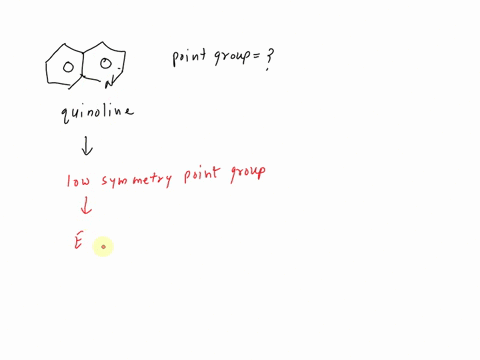 point group = ?
N
quinoline
low symmetry point group
E